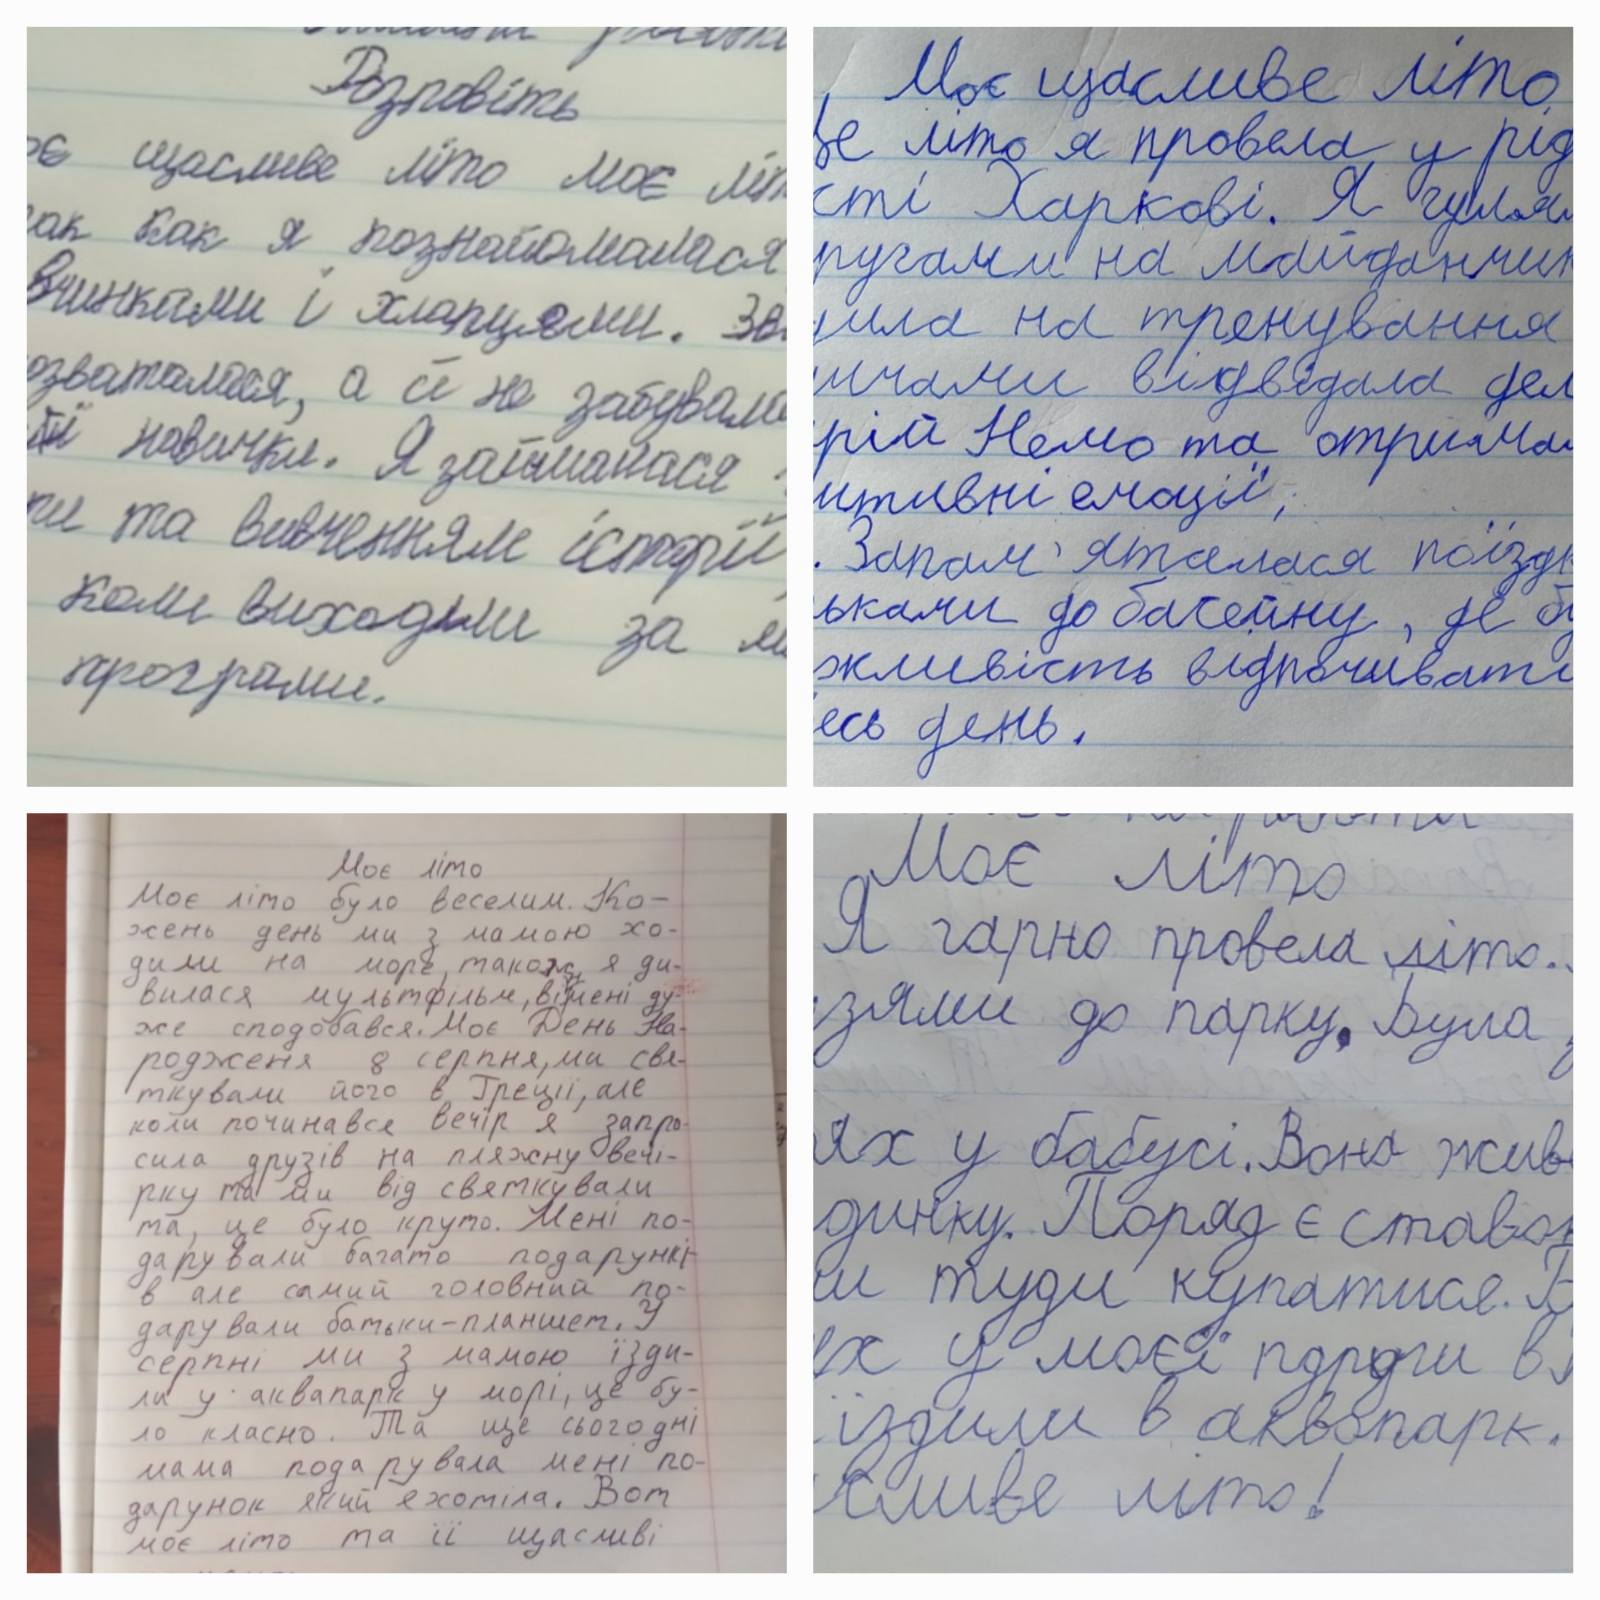 Розповіть
оє щасливе літо моє літ
так как я познайомалася
вчинками і хлапцями. Зав
озваталася, а й не забувала
ої навички. Я займалася
ти та вивченням історії,
коли виходили за м
програми.
Моє щасливе літо
Це літо я провела у рід
сті Харкові. Я гуляла
ругами на майданчик
дила на тренування
ичами відвідала дел
рій Немо та отримал
итивні емоції,
. Запам'яталася поїздк
ьками до басейну, де бу
жливість відпочивати
есь день.
Моє літо
Моє літо було веселим. Ко-
жень день ми з мамою хо-
дили на море, також я ди-
вилася мультфільм, він мені ду-
же сподобався. Моє День На-
родженя 8 серпня, ми свя-
ткували його в Греції, але
коли починався вечір я запро-
сила друзів на пляжну вечі-
рку та ми від святкували
та, це було круто. Мені по-
дарували багато подарункі-
в але самий головний по-
дарували батьки-планшет. У
серпні ми з мамою їзди-
ли у аквапарк у морі, це бу-
ло класно. Та ще сьогодні
мама подарувала мені по-
дарунок який я хотіла. Вот
моє літо та її щасливі
Моє літо
Я гарно провела літо.
узями до парку. Була з
ях у бабусі. Вона живе
динку. Поряд є ставок
и туди купатися. Б
ях у моєї подруги в
їздили в аквапарк.
сливе літо!